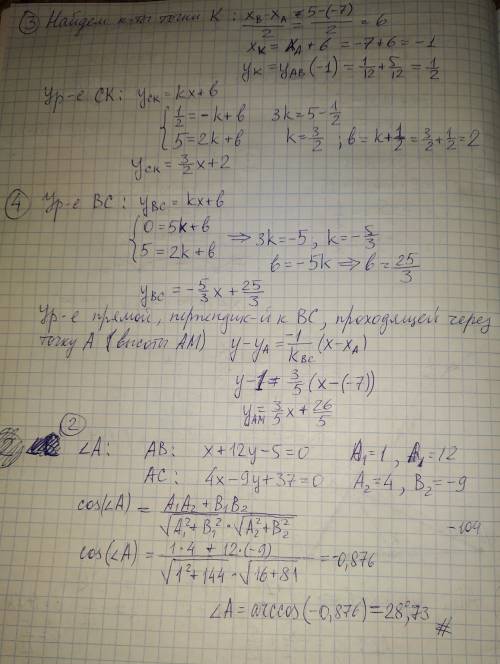 ③ Найдем к-ты точки K: (x_B - x_A)/2 = (5-(-7))/2 = 6
x_K = x_A + 6 = -7+6 = -1
y_K = y_AB(-1) = 1/12 + 5/12 = 1/2
Ур-е CK: y_CK = kx+b
{ 1/2 = -k+b    3k = 5 - 1/2
5 = 2k+b    k = 3/2 ; b = k + 1/2 = 3/2 + 1/2 = 2
y_CK = 3/2 x + 2
④ Ур-е BC: y_BC = kx+b
{ 0 = 5k+b
5 = 2k+b ⇒ 3k = -5, k = -5/3
b = -5k ⇒ b = 25/3
y_BC = -5/3 x + 25/3
Ур-е прямой, перпендик-й к BC, проходящей через
точку A (высоты AM) y - y_A = -1/k_BC (x - x_A)
y - 1 = 3/5 (x - (-7))
y_AM = 3/5 x + 26/5
②
∠A: AB: x+12y-5=0    A₁=1, B₁=12
AC: 4x-9y+37=0    A₂=4, B₂=-9
cos(∠A) = (A₁A₂+B₁B₂)/(√(A₁²+B₁²)·√(A₂²+B₂²))
-104
cos(∠A) = (1·4+12·(-9))/(√(1²+144)·√(16+81)) = -0,876
∠A = arccos(-0,876) = 28°,73 #